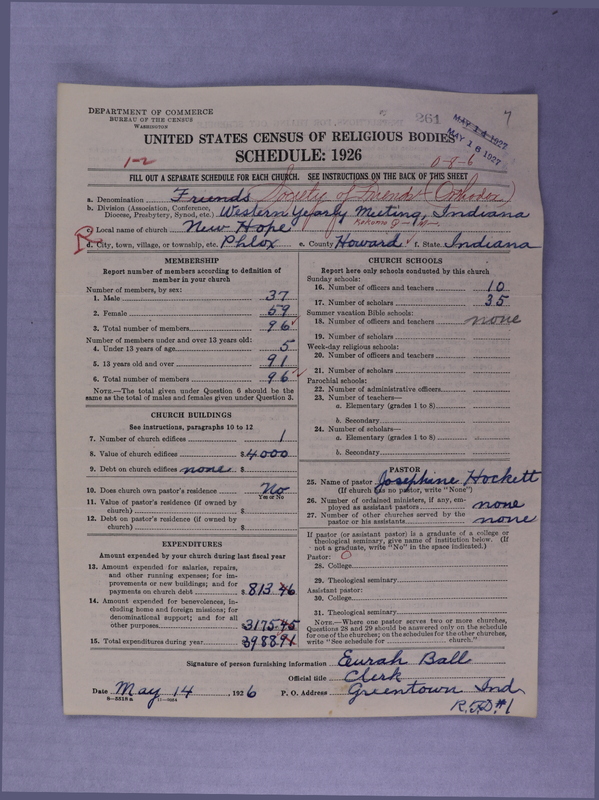 DEPARTMENT OF COMMERCE
BUREAU OF THE CENSUS
WASHINGTON
261
7
MAY 14 1927
MAY 16 1927
UNITED STATES CENSUS OF RELIGIOUS BODIES
SCHEDULE: 1926
1-2
0-8-6
FILL OUT A SEPARATE SCHEDULE FOR EACH CHURCH. SEE INSTRUCTIONS ON THE BACK OF THIS SHEET
a. Denomination Friends Society of Friends (Orthodox)
b. Division (Association, Conference, Diocese, Presbytery, Synod, etc.) Western Yearly Meeting, Indiana
c. Local name of church New Hope Kokomo Q-M-
R
d. City, town, village, or township, etc. Phlox e. County Howard f. State Indiana
MEMBERSHIP
Report number of members according to definition of
member in your church
Number of members, by sex:
1. Male 37
2. Female 59
3. Total number of members 96
Number of members under and over 13 years old:
4. Under 13 years of age 5
5. 13 years old and over 91
6. Total number of members 96
NOTE.—The total given under Question 6 should be the
same as the total of males and females given under Question 3.
CHURCH BUILDINGS
See instructions, paragraphs 10 to 12
7. Number of church edifices 1
8. Value of church edifices $4000
9. Debt on church edifices none $
10. Does church own pastor's residence No
Yes or No
11. Value of pastor's residence (if owned by
church) $
12. Debt on pastor's residence (if owned by
church) $
EXPENDITURES
Amount expended by your church during last fiscal year
13. Amount expended for salaries, repairs,
and other running expenses; for im-
provements or new buildings; and for
payments on church debt $813.46
14. Amount expended for benevolences, in-
cluding home and foreign missions; for
denominational support; and for all
other purposes 3175.45
15. Total expenditures during year 3988.91
CHURCH SCHOOLS
Report here only schools conducted by this church
Sunday schools:
16. Number of officers and teachers 10
17. Number of scholars 35
Summer vacation Bible schools:
18. Number of officers and teachers none
19. Number of scholars
Week-day religious schools:
20. Number of officers and teachers
21. Number of scholars
Parochial schools:
22. Number of administrative officers
23. Number of teachers—
a. Elementary (grades 1 to 8)
b. Secondary
24. Number of scholars—
a. Elementary (grades 1 to 8)
b. Secondary
PASTOR
25. Name of pastor Josephine Hockett
(If church has no pastor, write "None")
26. Number of ordained ministers, if any, em-
ployed as assistant pastors none
27. Number of other churches served by the
pastor or his assistants none
If pastor (or assistant pastor) is a graduate of a college or
theological seminary, give name of institution below. (If
not a graduate, write "No" in the space indicated.)
Pastor: O
28. College
29. Theological seminary
Assistant pastor:
30. College
31. Theological seminary
NOTE.—Where one pastor serves two or more churches,
Questions 28 and 29 should be answered only on the schedule
for one of the churches; on the schedules for the other churches,
write "See schedule for church."
Signature of person furnishing information Eurah Ball
Official title Clerk
Date May 14, 1926 P. O. Address Greentown Ind
R.F.D. #1